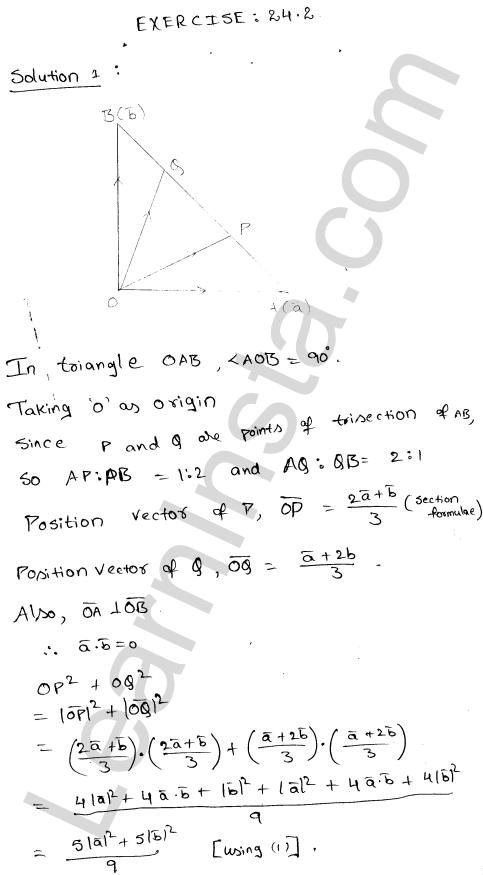 EXERCISE: 24.2
Solution 1 :
B(b̄)
Q
P
O
A(ā)
In triangle OAB, <AOB = 90°.
Taking 'O' as origin
Since P and Q are points of trisection of AB,
So AP:PB = 1:2 and AQ : QB = 2:1
Position vector of P, O̅P̅ = (2ā+b̄)/3 (section formulae)
Position vector of Q, O̅Q̅ = (ā+2b)/3 .
Also, O̅A̅ ⊥ O̅B̅
∴ ā.b̄=0
OP² + OQ²
= |O̅P̅|² + |O̅Q̅|²
= ((2ā+b̄)/3)·((2ā+b̄)/3) + ((ā+2b̄)/3)·((ā+2b̄)/3)
= (4|ā|² + 4ā.b̄ + |b̄|² + |ā|² + 4ā.b̄ + 4|b̄|²)/9
= (5|ā|² + 5|b̄|²)/9 [using (1)].
LearnInsta.com